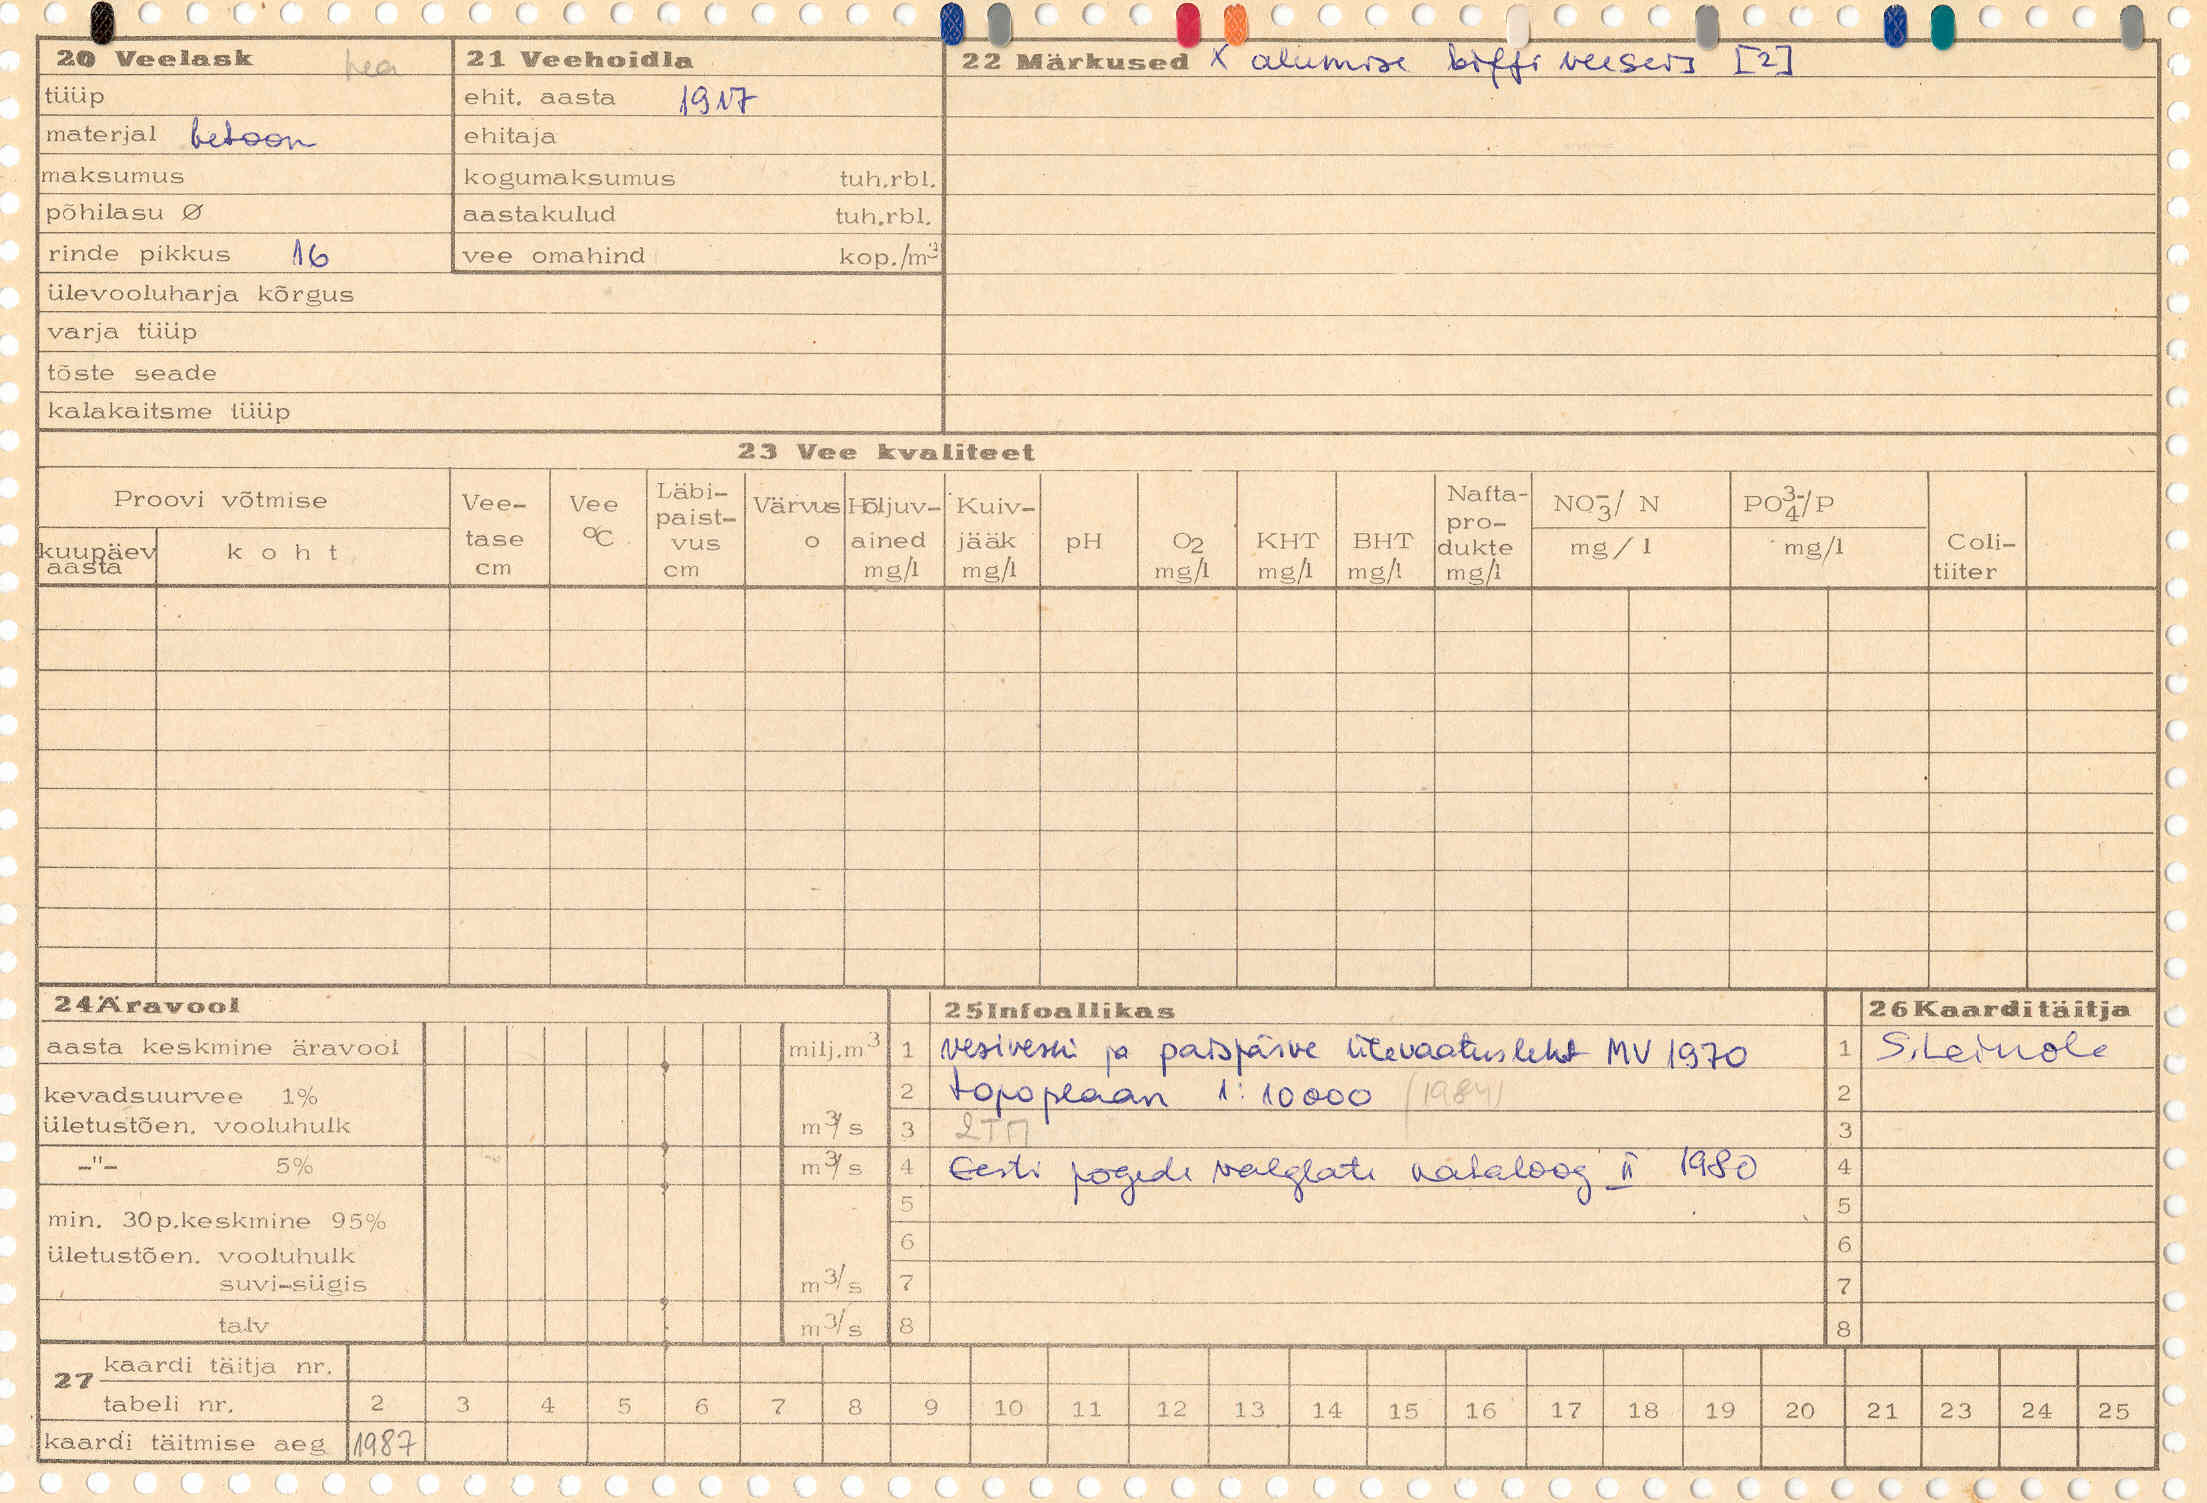 20 Veelask hea
tüüp
materjal betoon
maksumus
põhilasu Ø
rinde pikkus 16
ülevooluharja kõrgus
varja tüüp
tõste seade
kalakaitsme tüüp
21 Veehoidla
ehit. aasta 1917
ehitaja
kogumaksumus tuh.rbl.
aastakulud tuh.rbl.
vee omahind kop./m³
22 Märkused X alumise biefi veeseis [2]
23 Vee kvaliteet
Proovi võtmise
kuupäev
aasta
koht
Vee-
tase
cm
Vee
°C
Läbi-
paist-
vus
cm
Värvus
o
Hõljuv-
ained
mg/l
Kuiv-
jääk
mg/l
pH
O2
mg/l
KHT
mg/l
BHT
mg/l
Nafta-
pro-
dukte
mg/l
NO₃⁻/ N
mg/l
PO₄³⁻/P
mg/l
Coli-
tiiter
24 Äravool
aasta keskmine äravool milj.m³
kevadsuurvee 1%
ületustõen. vooluhulk m³/s
-"- 5% m³/s
min. 30p.keskmine 95%
ületustõen. vooluhulk
suvi-sügis m³/s
talv m³/s
25 Infoallikas
1 vesiveski ja paisjärve ülevaatusleht MV 1970
2 topoplaan 1:10000 (1984)
3 2TП
4 Eesti jõgede valglate kataloog II 1980
5
6
7
8
26 Kaarditäitja
1 S.Leinola
2
3
4
5
6
7
8
27 kaardi täitja nr.
tabeli nr. 2 3 4 5 6 7 8 9 10 11 12 13 14 15 16 17 18 19 20 21 23 24 25
kaardi täitmise aeg 1987